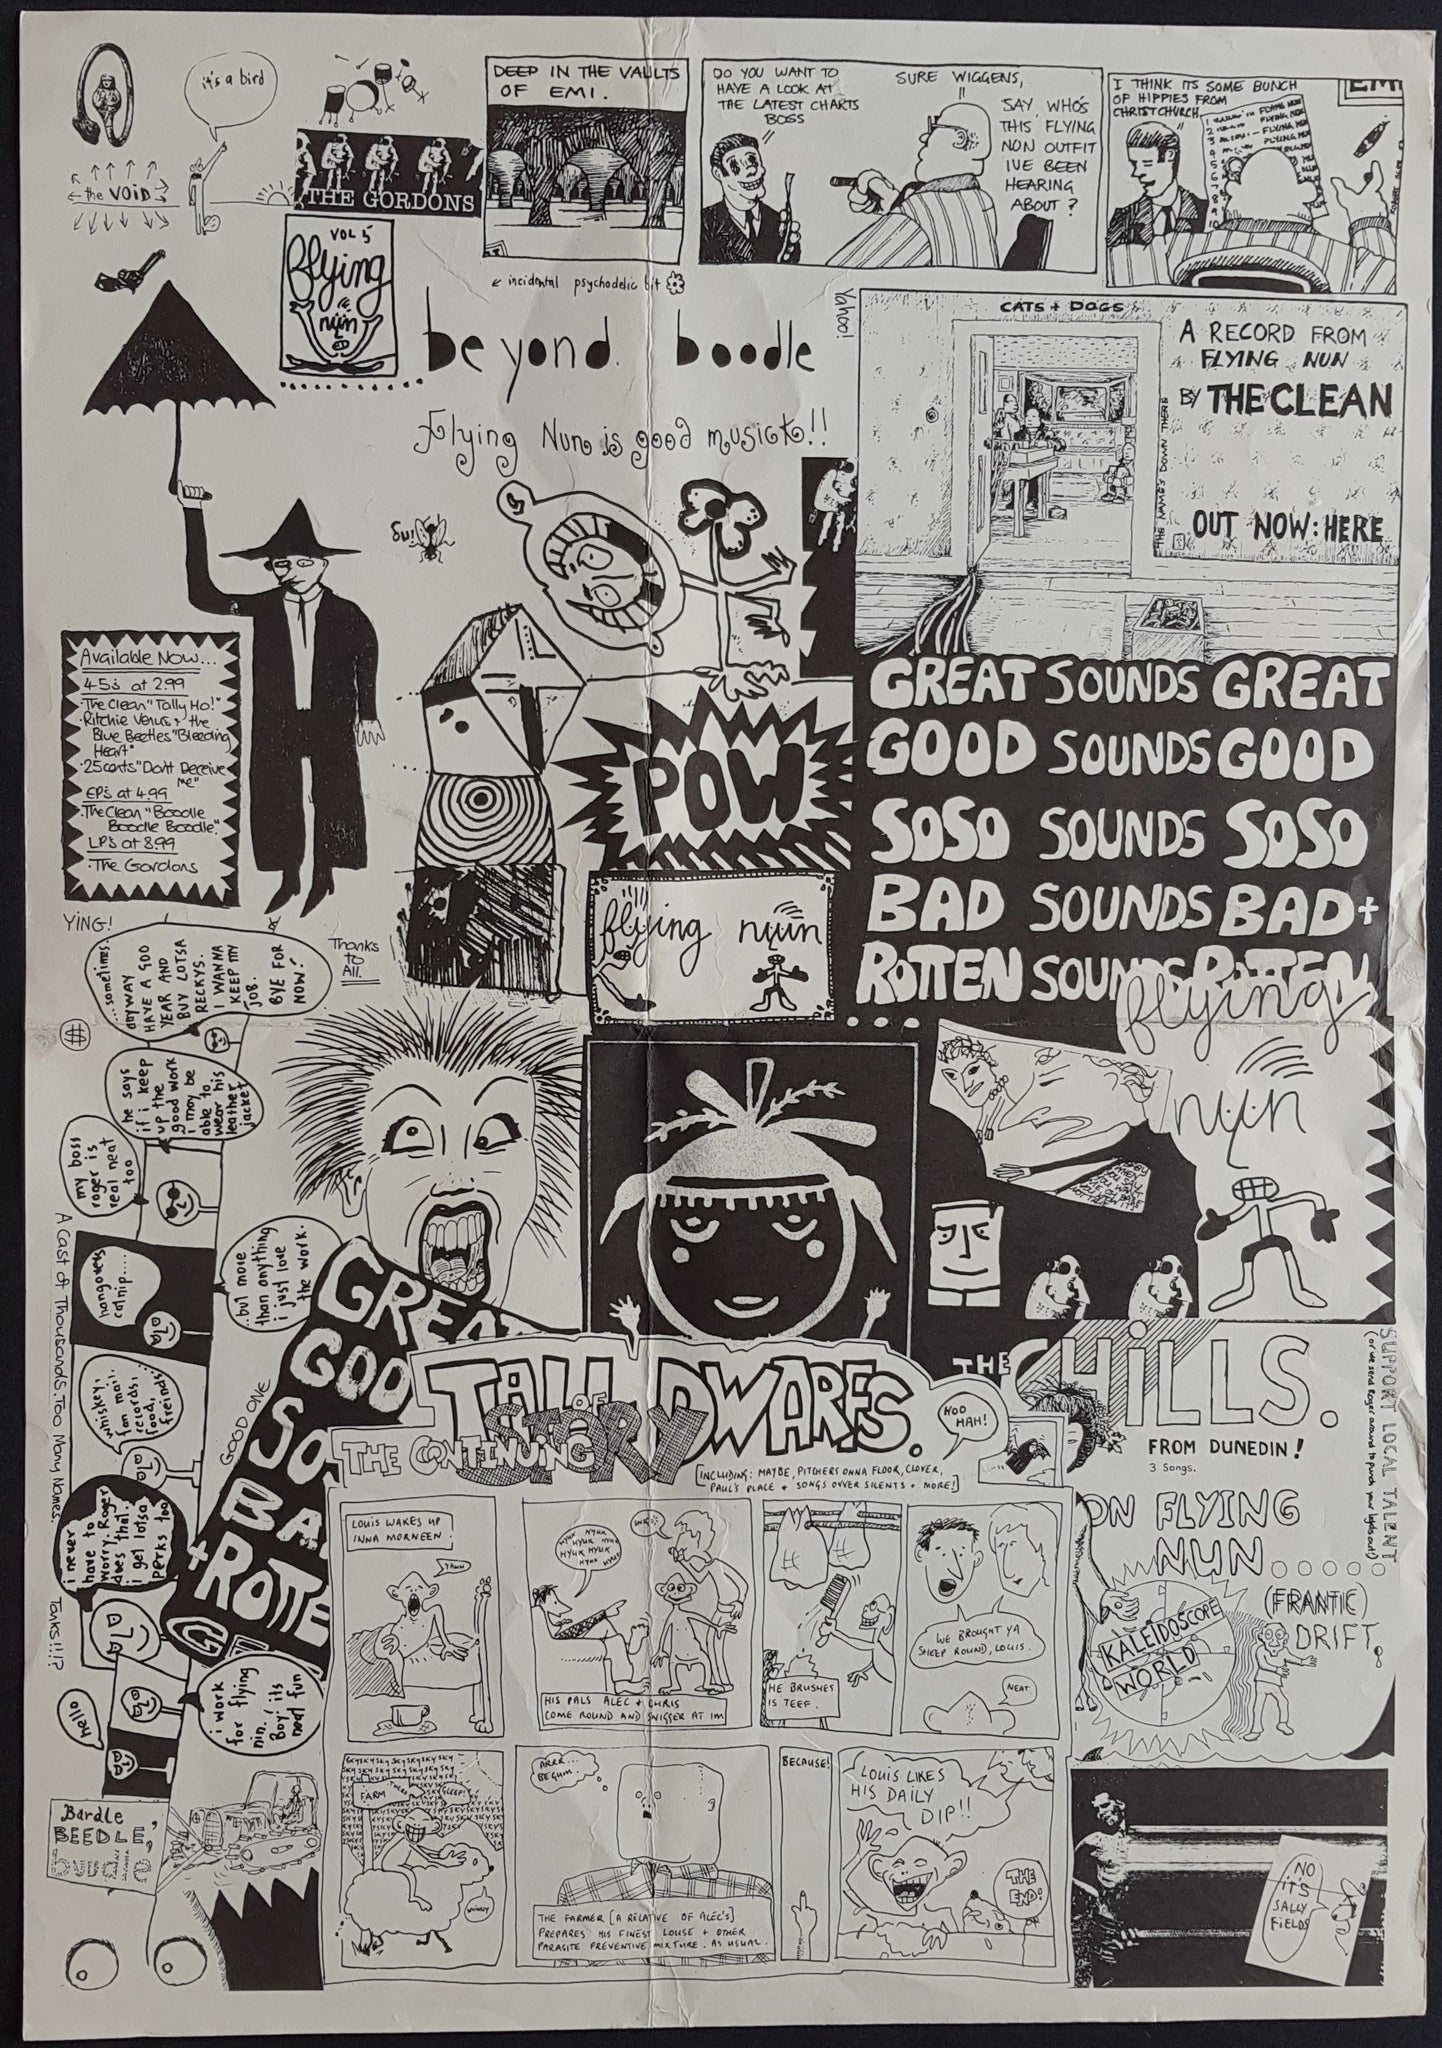 it's a bird
the VOID
THE GORDONS
DEEP IN THE VAULTS
OF EMI.
DO YOU WANT TO
HAVE A LOOK AT
THE LATEST CHARTS
BOSS
SURE WIGGENS,
SAY, WHO'S
THIS FLYING
NON OUTFIT
IVE BEEN
HEARING
ABOUT?
I THINK ITS SOME BUNCH
OF HIPPIES FROM
CHRISTCHURCH
EMI
VOL 5
flying
nun
← incidental psychodelic bit
Yahoo!
beyond. boodle
Flying Nun is good musick!!
CATS + DOGS
A RECORD FROM
FLYING NUN
BY THE CLEAN
OUT NOW: HERE
THE NAMES DOWN THERE
Available Now...
45's at 2.99
·The Clean "Tally Ho!"
·Ritchie Venus + the
Blue Beetles "Bleeding
Heart"
·25 cents "Don't Deceive
me"
EP's at 4.99
·The Clean "Boodle
Boodle Boodle"
LP's at 8.99
·The Gordons
POW
GREAT SOUNDS GREAT
GOOD SOUNDS GOOD
SOSO SOUNDS SOSO
BAD SOUNDS BAD +
ROTTEN SOUNDS ROTTEN
YING!
Thanks
to
All.
flying nuun
flying
nun
...sometimes.
anyway
HAVE A GOO
YEAR AND
BUY LOTSA
RECKYS.
I WANNA
KEEP MY
JOB.
BYE FOR
NOW!
he says
if i keep
up the
good work
i may be
able to
wear his
leather
jacket
my boss
roger is
real neat
too
but more
than anything
i just love
the work.
hangovers
catnip....
whiskey,
fan mail,
records,
food,
freinds,
i never
have to
worry. Roger
does that.
i get lotsa
perks too
i work
for flying
nin. (
Boy its
neat fun
hello
A Cast of Thousands. Too Many Names.
Tanks!!!?
GOOD ONE
GREA
GOO
SO
BA
+ROTTE
TALL DWARFS.
THE CONTINUING STORY OF
HOO
HAH!
[INCLUDING: MAYBE, PITCHERS ONNA FLOOR, CLOVER,
PAUL'S PLACE + SONGS OVVER SILENTS + MORE!]
THE CHiLLS.
FROM DUNEDIN!
3 Songs.
ON FLYING
NUN
KALEIDOSCOPE
WORLD
(FRANTIC)
DRIFT.
SUPPORT LOCAL TALENT
(or we send Roger around to punch your lights out!)
LOUIS WAKES UP
INNA MORNEEN!
YAWN
HYUK HYUK
HYUK HYUK
HIS PALS ALEC + CHRIS
COME ROUND AND SNIGGER AT IM
HE BRUSHES
IS TEEF.
WE BROUGHT YA
SHEEP ROUND, LOUIS.
NEAT.
SKY SKY SKY SKY
FARM
THERE
GLEEP!
ARRR...
BEGUM...
THE FARMER [A RELATIVE OF ALEC'S]
PREPARES HIS FINEST LOUSE + OTHER
PARASITE PREVENTIVE MIXTURE. AS USUAL.
BECAUSE!
LOUIS LIKES
HIS DAILY
DIP!!
THE
END!
Bardle
BEEDLE,
burdle
NO
IT'S
SALLY
FIELDS